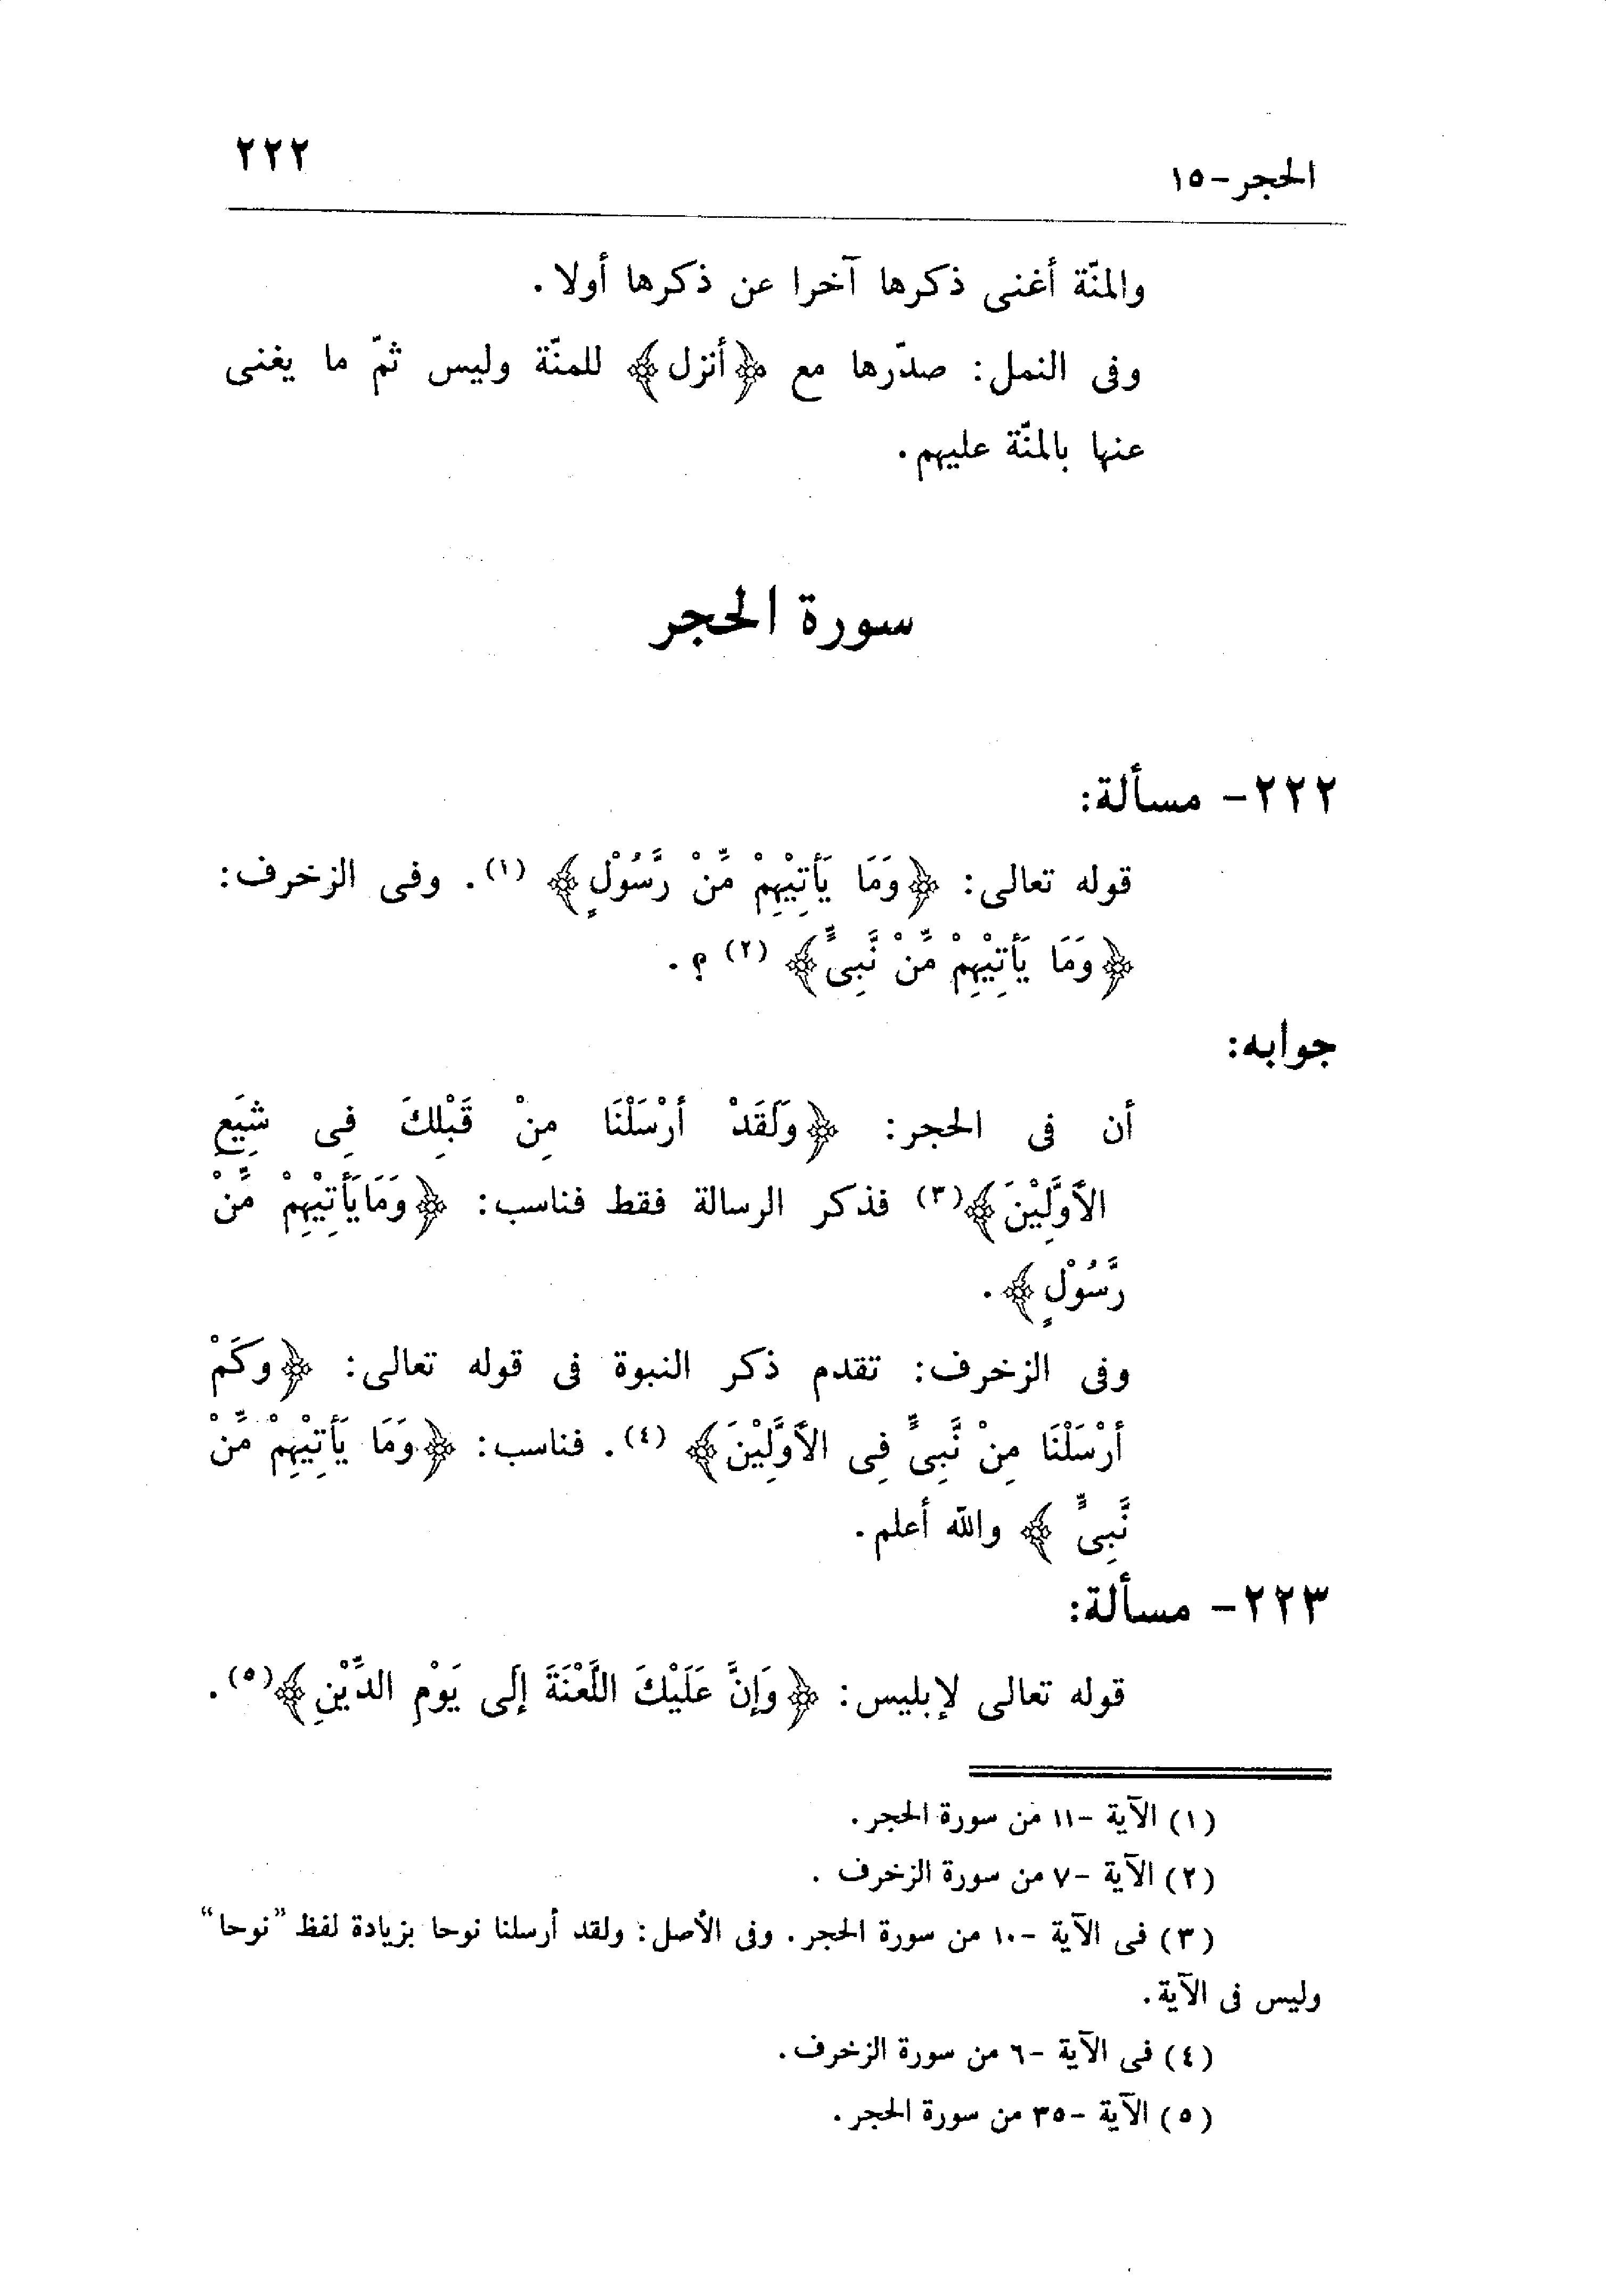 الحجر-١٥
٢٢٢
والمنّة أغنى ذكرها آخرا عن ذكرها أولا.
وفى النمل: صدّرها مع ﴿أنزل﴾ للمنّة وليس ثمّ ما يغنى
عنها بالمنّة عليهم.
سورة الحجر
٢٢٢- مسألة:
قوله تعالى: ﴿وَمَا يَأْتِيْهِمْ مِّنْ رَّسُوْلٍ﴾ (١). وفى الزخرف:
﴿وَمَا يَأْتِيْهِمْ مِّنْ نَّبِىٍّ﴾ (٢) ؟.
جوابه:
أن فى الحجر: ﴿وَلَقَدْ أرْسَلْنَا مِنْ قَبْلِكَ فِى شِيَعِ
الأوَّلِيْنَ﴾(٣) فذكر الرسالة فقط فناسب: ﴿وَمَايَأْتِيْهِمْ مِّنْ
رَّسُوْلٍ﴾.
وفى الزخرف: تقدم ذكر النبوة فى قوله تعالى: ﴿وكَمْ
أرْسَلْنَا مِنْ نَّبِىٍّ فِى الأوَّلِيْنَ﴾ (٤). فناسب: ﴿وَمَا يَأْتِيْهِمْ مِّنْ
نَّبِىٍّ ﴾ والله أعلم.
٢٢٣- مسألة:
قوله تعالى لإبليس: ﴿وَإنَّ عَلَيْكَ اللَّعْنَةَ إلَى يَوْمِ الدِّيْنِ﴾(٥).
(١) الآية -١١ من سورة الحجر.
(٢) الآية -٧ من سورة الزخرف .
(٣) فى الآية -١٠ من سورة الحجر. وفى الأصل: ولقد أرسلنا نوحا بزيادة لفظ "نوحا"
وليس فى الآية.
(٤) فى الآية -٦ من سورة الزخرف.
(٥) الآية -٣٥ من سورة الحجر.